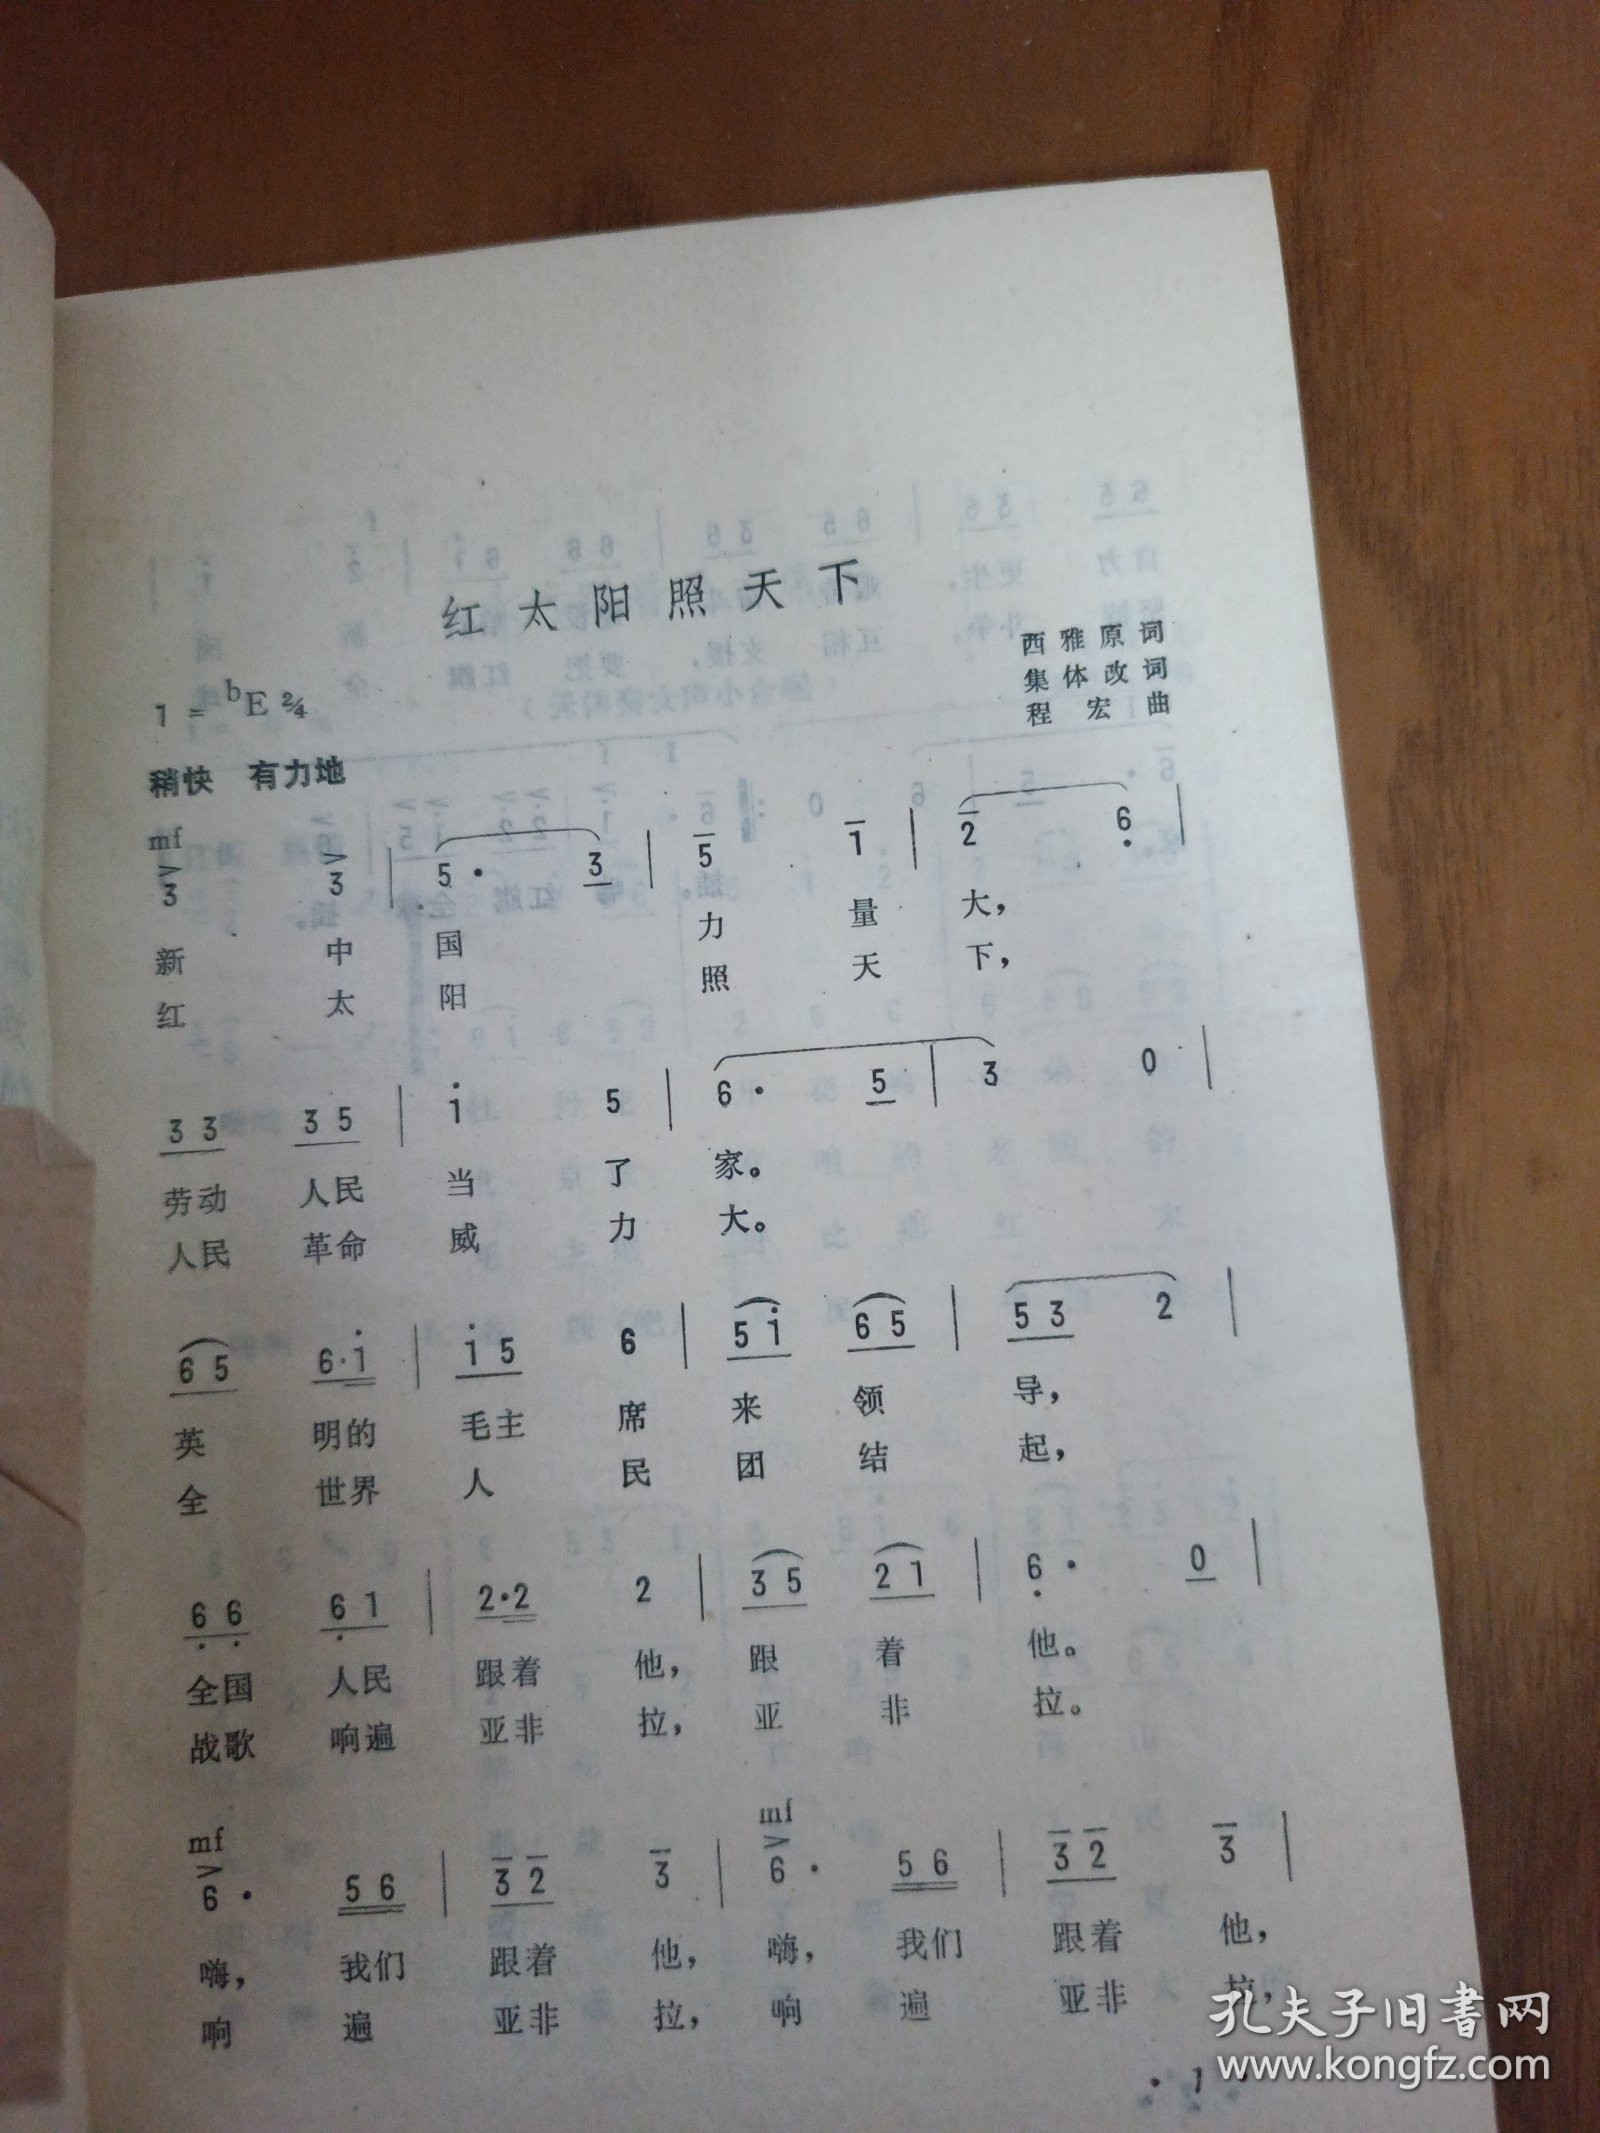 红太阳照天下
西雅原词
集体改词
程宏曲
1 = bE 2/4
稍快 有力地
mf
3 3 | 5 · 3 | 5 1 | 2 6 |
新 中 国 力 量 大，
红 太 阳 照 天 下，
3 3 3 5 | 1 5 | 6 · 5 | 3 0 |
劳动 人民 当 了 家。
人民 革命 威 力 大。
6 5 6·1 | 1 5 6 | 5 1 6 5 | 5 3 2 |
英 明的 毛主 席 来 领 导，
全 世界 人 民 团 结 起，
6 6 6 1 | 2·2 2 | 3 5 2 1 | 6 · 0 |
全国 人民 跟着 他， 跟 着 他。
战歌 响遍 亚非 拉， 亚 非 拉。
mf mf
6 · 5 6 | 3 2 3 | 6 · 5 6 | 3 2 3 |
嗨， 我们 跟着 他， 嗨， 我们 跟着 他，
响 遍 亚非 拉， 响 遍 亚非 拉，
孔夫子旧书网
www.kongfz.com
· 1 ·